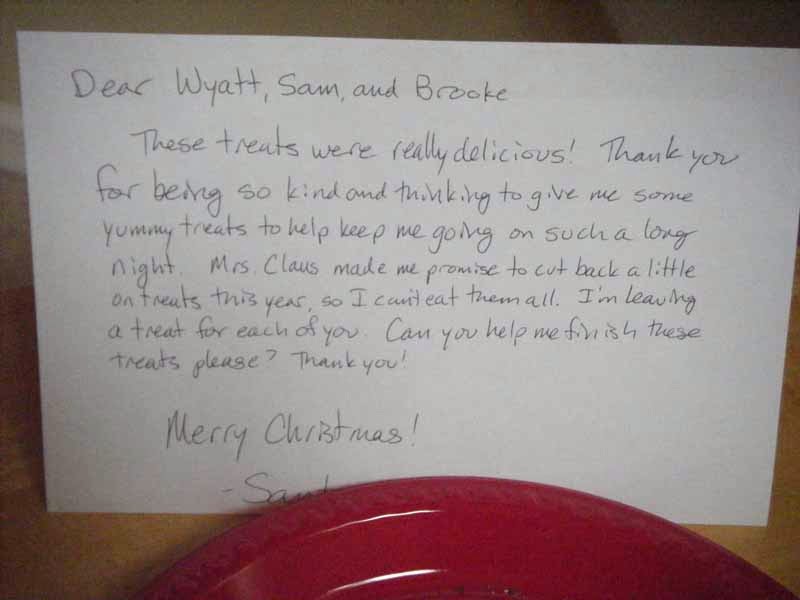 Dear Wyatt, Sam, and Brooke
These treats were really delicious! Thank you
for being so kind and thinking to give me some
yummy treats to help keep me going on such a long
night. Mrs. Claus made me promise to cut back a little
on treats this year, so I can't eat them all. I'm leaving
a treat for each of you. Can you help me finish these
treats please? Thank you!
Merry Christmas!